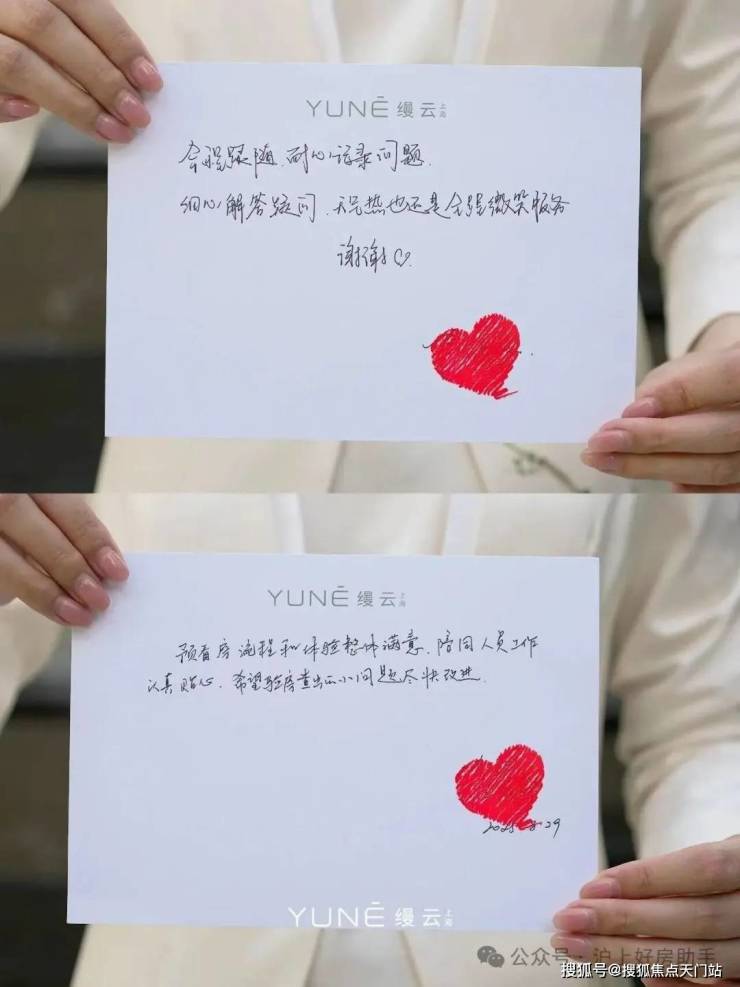 YUNĒ 缦云 上海
全程跟随,耐心记录问题.
细心解答疑问,天气热也还是全程微笑服务
谢谢♡.
YUNĒ 缦云 上海
预看房流程和体验整体满意,陪同人员工作
认真贴心,希望验房查出的小问题尽快改进.
2025-8-29
YUNĒ 缦云 上海
公众号·沪上好房助手
搜狐号@搜狐焦点天门站